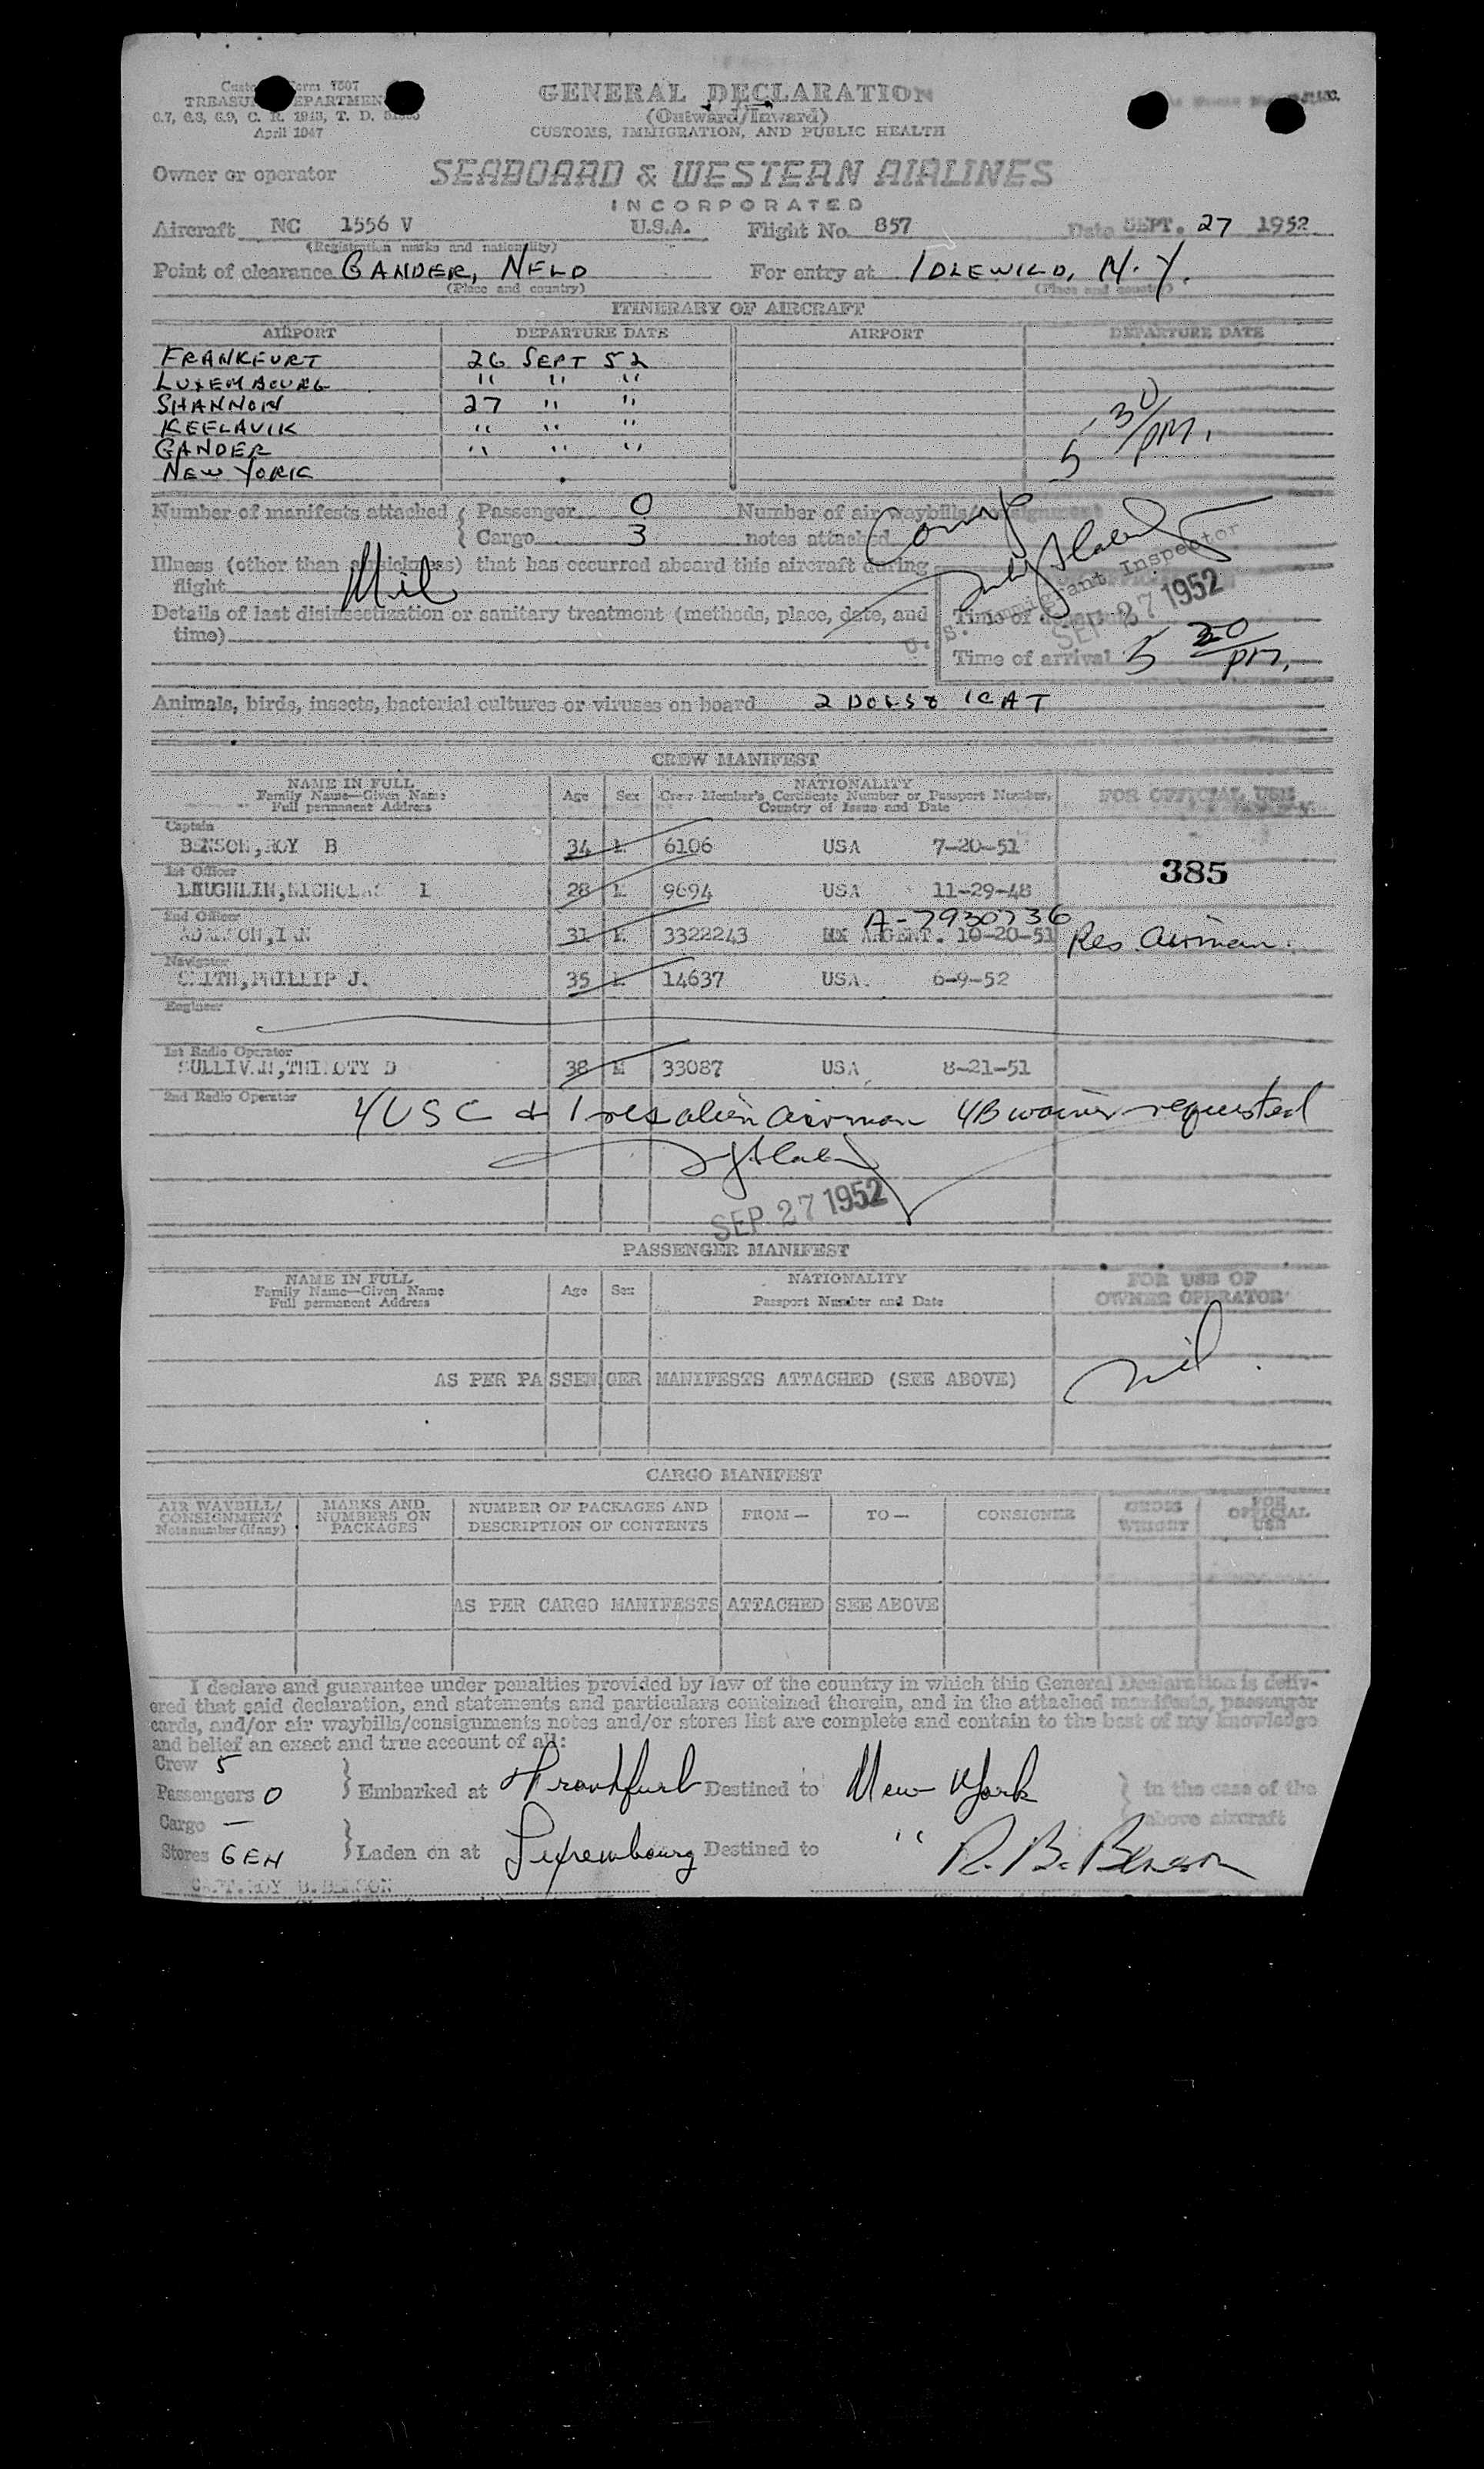 Customs Form 7507
TREASURY DEPARTMENT
6.7, 6.8, 6.9, C. R. 1943, T. D.
April 1947
GENERAL DECLARATION
(Outward/Inward)
CUSTOMS, IMMIGRATION, AND PUBLIC HEALTH
Owner or operator SEABOARD & WESTERN AIRLINES
INCORPORATED
Aircraft NC 1556 V U.S.A. Flight No. 857 Date SEPT. 27 1952
(Registration marks and nationality)
Point of clearance GANDER, NFLD For entry at IDLEWILD, N.Y.
(Place and country) (Place and country)
ITINERARY OF AIRCRAFT
AIRPORT DEPARTURE DATE AIRPORT DEPARTURE DATE
FRANKFURT 26 SEPT 52
LUXEMBOURG " " "
SHANNON 27 " "
KEFLAVIK " " "
GANDER " " "
NEW YORK
5 30/PM.
Number of manifests attached { Passenger 0 Number of air waybills/consignment
{ Cargo 3 notes attached
Illness (other than airsickness) that has occurred aboard this aircraft during
flight Nil
U.S. Immigrant Inspector
Details of last disinsectization or sanitary treatment (methods, place, date, and
time)
Time of departure
SEP 27 1952
Time of arrival 5 20/PM.
Animals, birds, insects, bacterial cultures or viruses on board 2 DOGS & 1 CAT
CREW MANIFEST
NAME IN FULL
Family Name—Given Name
Full permanent Address
Age Sex
NATIONALITY
Crew Member's Certificate Number or Passport Number,
Country of Issue and Date
FOR OFFICIAL USE
Captain
BENSON, ROY B 34 M 6106 USA 7-20-51
385
1st Officer
LAUGHLIN, NICHOLAS I 28 M 9694 USA 11-29-48
A-7930736
2nd Officer
ADAMSON, IAN 31 M 3322243 ARGENT. 10-20-51 Res. Airman.
Navigator
SMITH, PHILLIP J. 35 M 14637 USA. 6-9-52
Engineer
1st Radio Operator
SULLIVAN, TIMOTY D 38 M 33087 USA 8-21-51
2nd Radio Operator
4 USC & 1 res alien airman 4B waiver requested
SEP 27 1952
PASSENGER MANIFEST
NAME IN FULL
Family Name—Given Name
Full permanent Address
Age Sex
NATIONALITY
Passport Number and Date
FOR USE OF
OWNER OPERATOR
nil.
AS PER PASSENGER MANIFESTS ATTACHED (SEE ABOVE)
CARGO MANIFEST
AIR WAYBILL/
CONSIGNMENT
Note number (if any)
MARKS AND
NUMBERS ON
PACKAGES
NUMBER OF PACKAGES AND
DESCRIPTION OF CONTENTS
FROM— TO— CONSIGNEE
GROSS
WEIGHT
FOR
OFFICIAL
USE
AS PER CARGO MANIFESTS ATTACHED SEE ABOVE
I declare and guarantee under penalties provided by law of the country in which this General Declaration is deliv-
ered that said declaration, and statements and particulars contained therein, and in the attached manifests, passenger
cards, and/or air waybills/consignments notes and/or stores list are complete and contain to the best of my knowledge
and belief an exact and true account of all:
Crew 5
Passengers 0 } Embarked at Frankfurt Destined to New York } in the case of the
Cargo — above aircraft
Stores GEN } Laden on at Luxembourg Destined to " R. B. Benson
CAPT. ROY B. BENSON